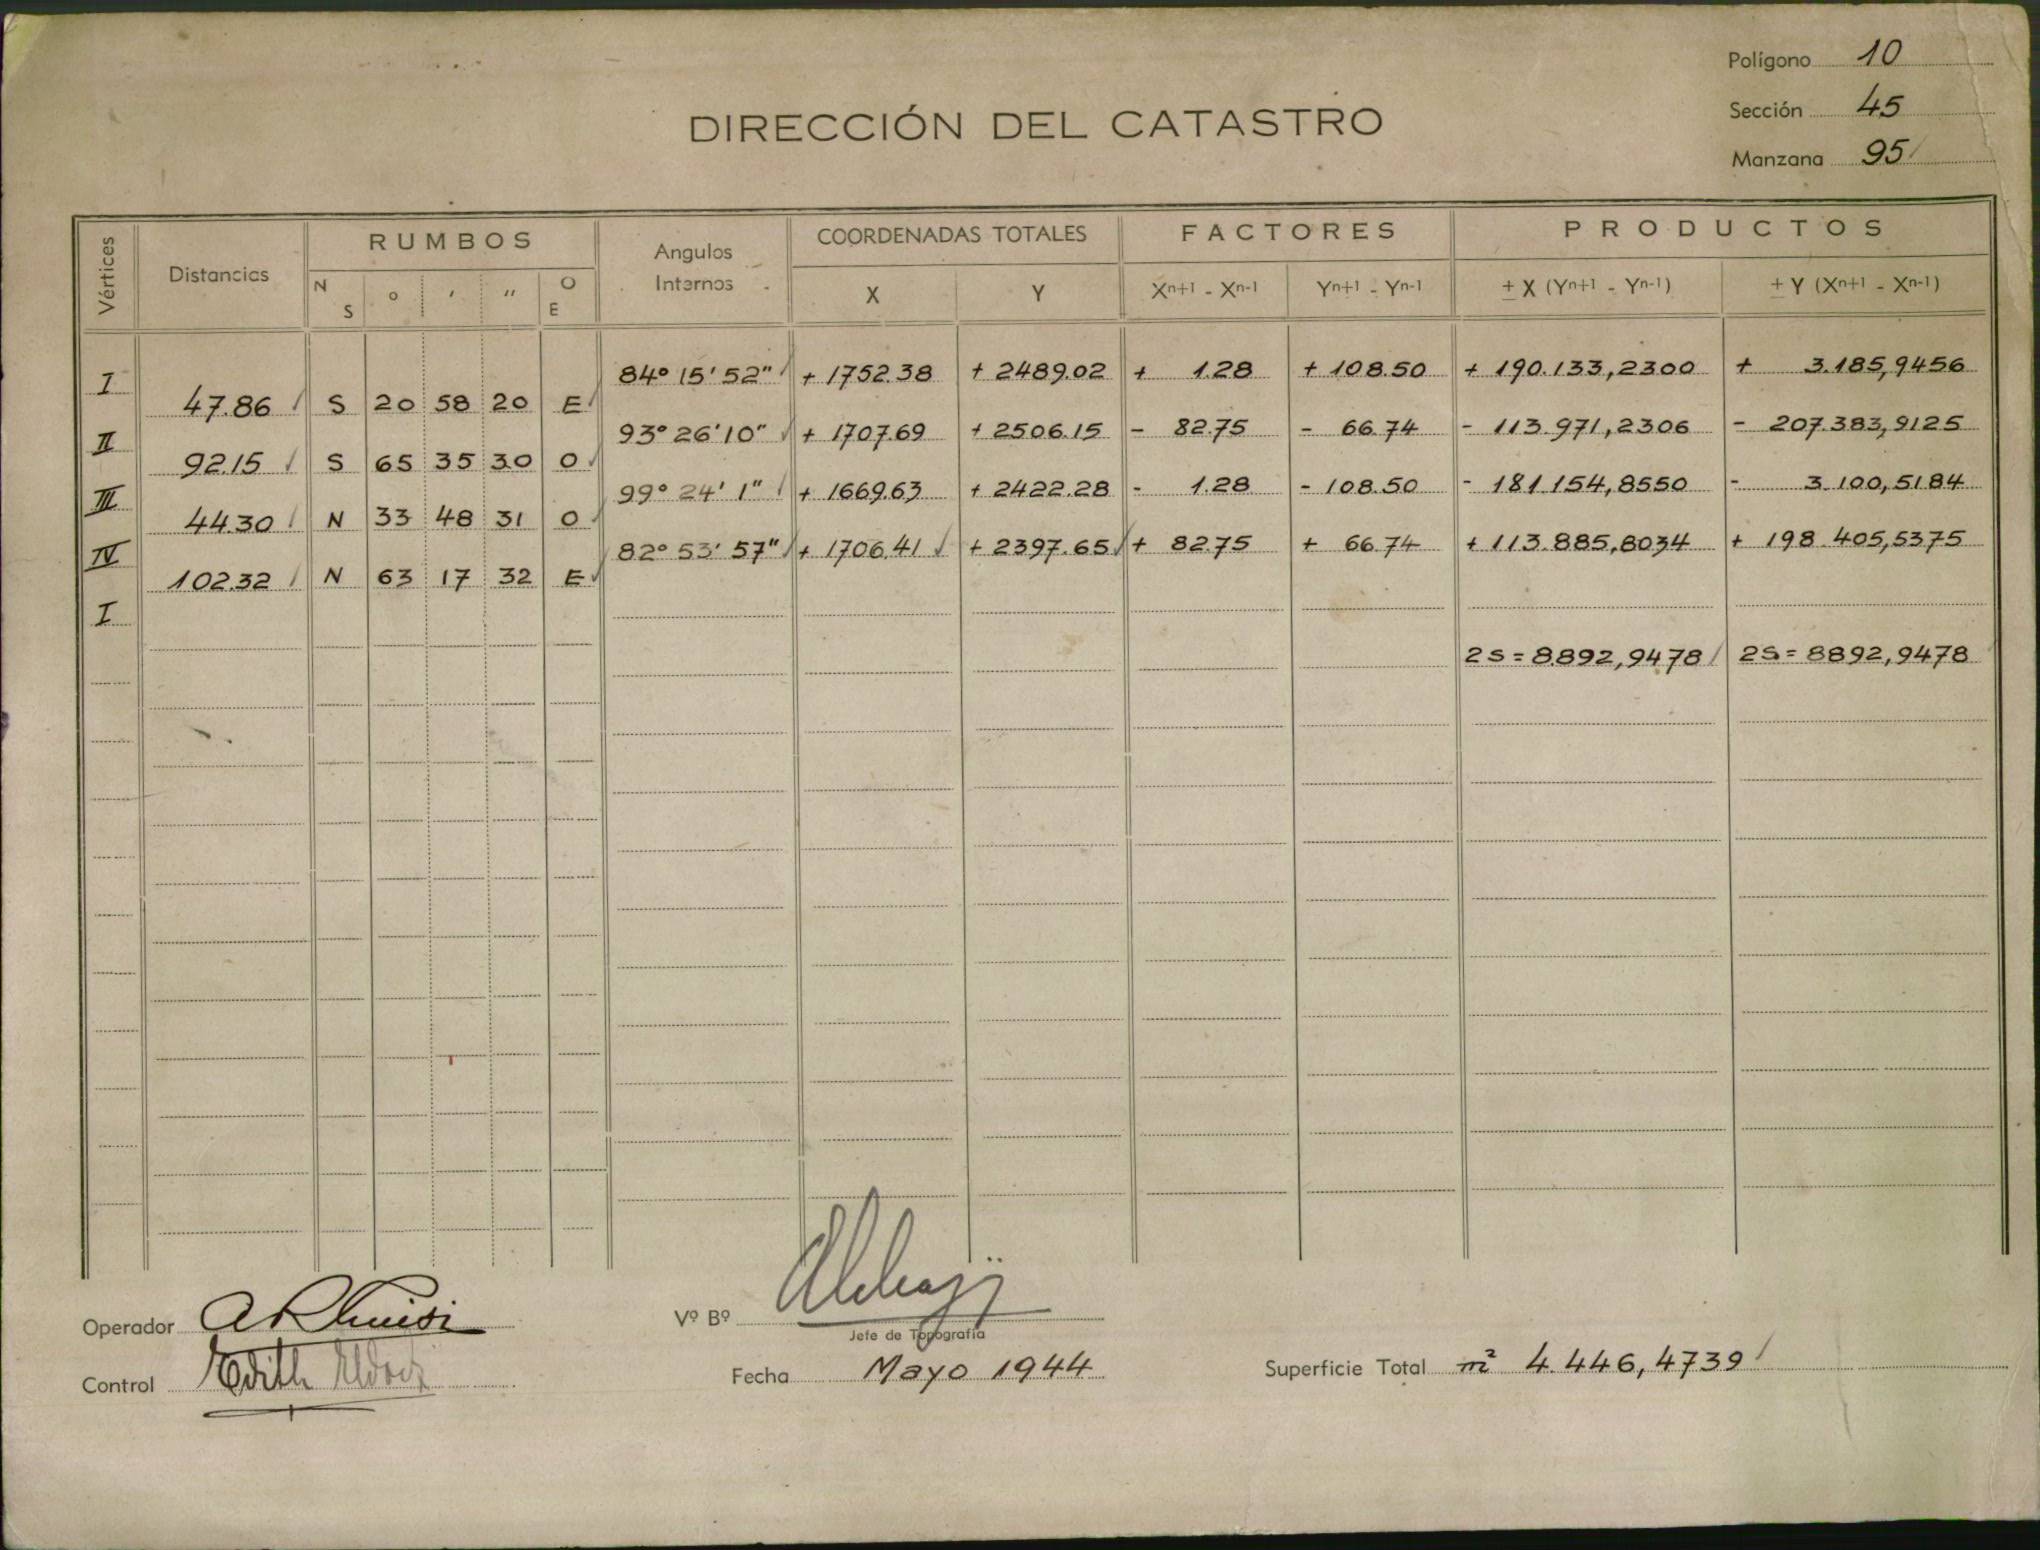 Polígono 10
Sección 45
Manzana 95
DIRECCIÓN DEL CATASTRO
Vértices Distancias RUMBOS Angulos Internos COORDENADAS TOTALES FACTORES PRODUCTOS
N S ° ' " O E X Y Xn+1 - Xn-1 Yn+1 - Yn-1 ± X (Yn+1 - Yn-1) ± Y (Xn+1 - Xn-1)
I 84° 15' 52" + 1752.38 + 2489.02 + 1.28 + 108.50 + 190.133,2300 + 3.185,9456
47.86 S 20 58 20 E
II 93° 26' 10" + 1707.69 + 2506.15 - 82.75 - 66.74 - 113.971,2306 - 207.383,9125
92.15 S 65 35 30 O
III 99° 24' 1" + 1669.63 + 2422.28 - 1.28 - 108.50 - 181.154,8550 - 3.100,5184
44.30 N 33 48 31 O
IV 82° 53' 57" + 1706.41 + 2397.65 + 82.75 + 66.74 + 113.885,8034 + 198.405,5375
102.32 N 63 17 32 E
I
2S = 8.892,9478 2S = 8892,9478
Operador
Vº Bº
Jefe de Topografía
Control Edith
Fecha Mayo 1944
Superficie Total m² 4.446,4739